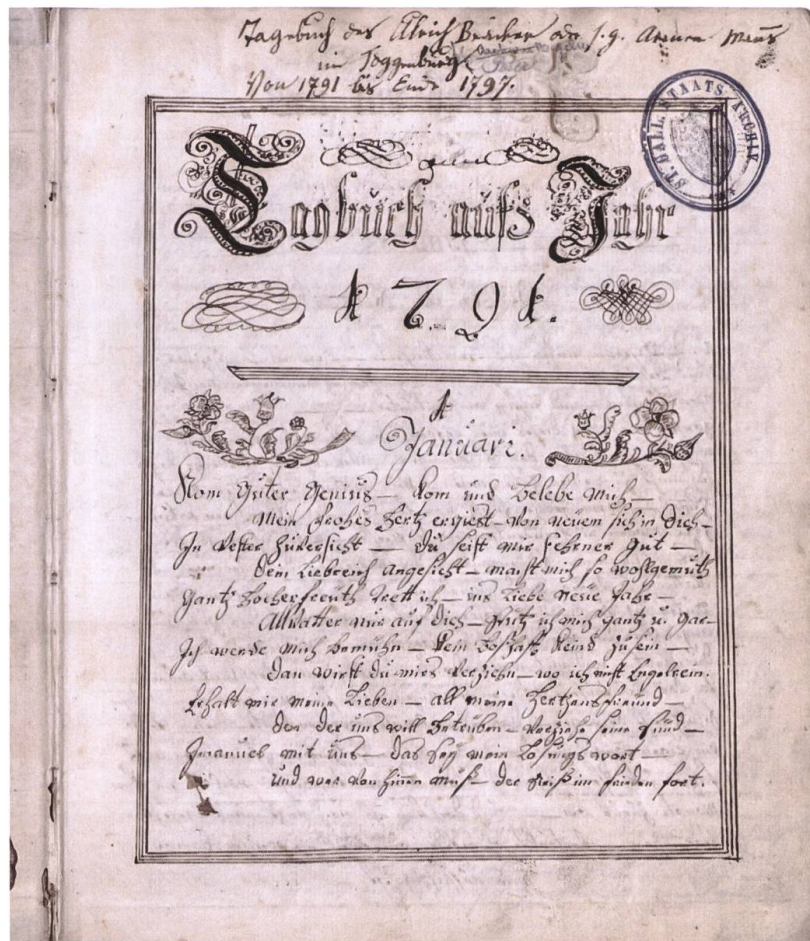 Tagebuch des Ulrich Bräker oder s. g. Armen Mans
im Toggenburg
Von 1791 bis Ende 1797.
ST. GALL. STAATS-ARCHIV
Tagbuch aufs Jahr
1791.
1
Januari.
Kom guter Genius – kom und belebe mich –
mein frohes hertz ergiest – von neuem sich in dich –
In vester zuversicht – du seist mir fehrner gut –
dein liebreich angesicht – macht mich so wohlgemuth
gantz hocherfreuth trett ich – ins liebe neüe jahr –
Allvatter nur auf dich – stütz ich mich gantz u. gar –
Ich werde mich bemühn – kein boßhaft kind zusein –
dan wirst du mirs verziehn – wo ich nicht Engelrein.
Erhalt mir meine Lieben – all meine hertzensfreünd –
den der uns will betrüben – verziehe seine sünd –
Imanuel mit uns – das sey mein losungswort –
und wer von hinen muß – der reiß im frieden fort.